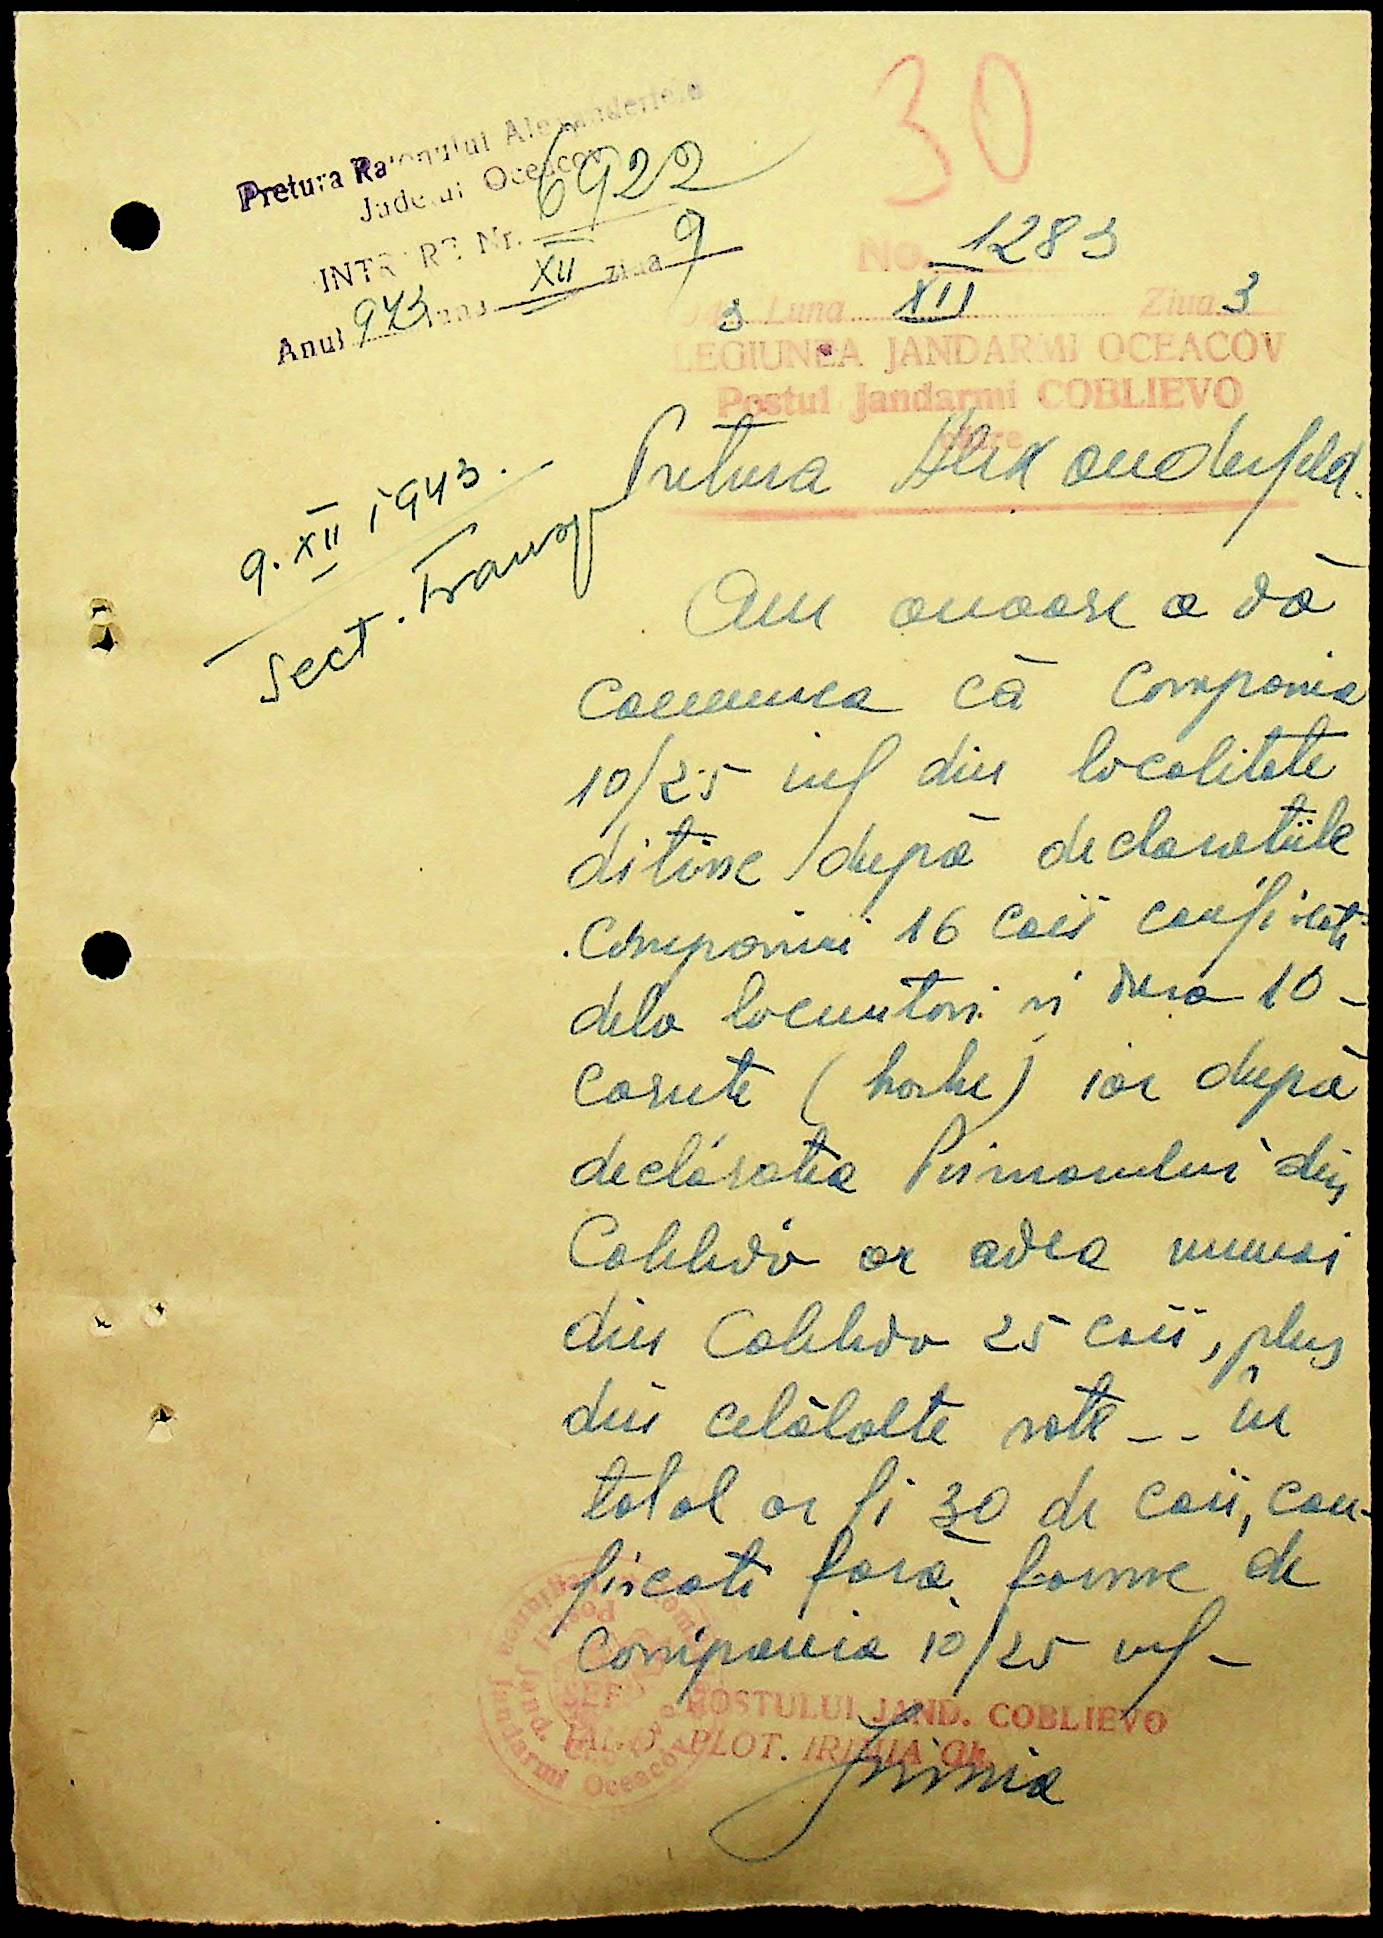 30
Pretura Raionului Alexanderfeld
Judetul Oceacov
INTRARE Nr. 6922
Anul 943 luna XII ziua 9
No. 1283
3 Luna XII Ziua 3
LEGIUNEA JANDARMI OCEACOV
Postul Jandarmi COBLIEVO
către
Pretura Alexanderfeld.
9. XII 1943.
Sect. Transp
Am onoare a vă
comunica că Compania
10/25 inf din localitate
ditine după declaratiile
Companiei 16 caii confiscati
dela locuitori si vreo 10 -
carute ( harbe) iar după
declaratia Primarului din
Coblevo ar avea numai
din Coblevo 25 caii, plus
din celălalte sate -- în
total ar fi 30 de caii, con-
fiscati fară forme de
Compania 10/25 inf -
SEFUL POSTULUI JAND. COBLIEVO
PLOT. IRIMIA Gh.
Irimia
Legiunea Jandarmi Oceacov
Postul Jand.